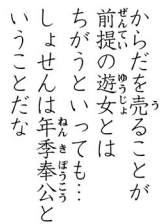 からだを売ることが
前提の遊女とは
ちがうといっても…
しょせんは年季奉公と
いうことだな